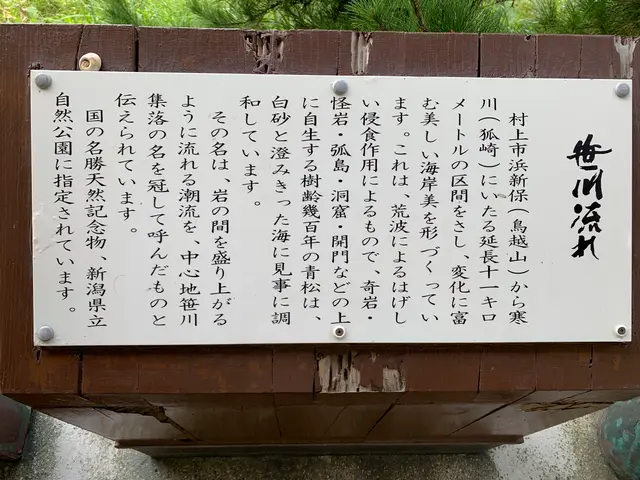 笹川流れ
村上市浜新保(鳥越山)から寒
川(狐崎)にいたる延長十一キロ
メートルの区間をさし、変化に富
む美しい海岸美を形づくってい
ます。これは、荒波によるはげし
い侵食作用によるもので、奇岩・
怪岩・孤島・洞窟・開門などの上
に自生する樹齢幾百年の青松は、
白砂と澄みきった海に見事に調
和しています。
その名は、岩の間を盛り上がる
ように流れる潮流を、中心地笹川
集落の名を冠して呼んだものと
伝えられています。
国の名勝天然記念物、新潟県立
自然公園に指定されています。